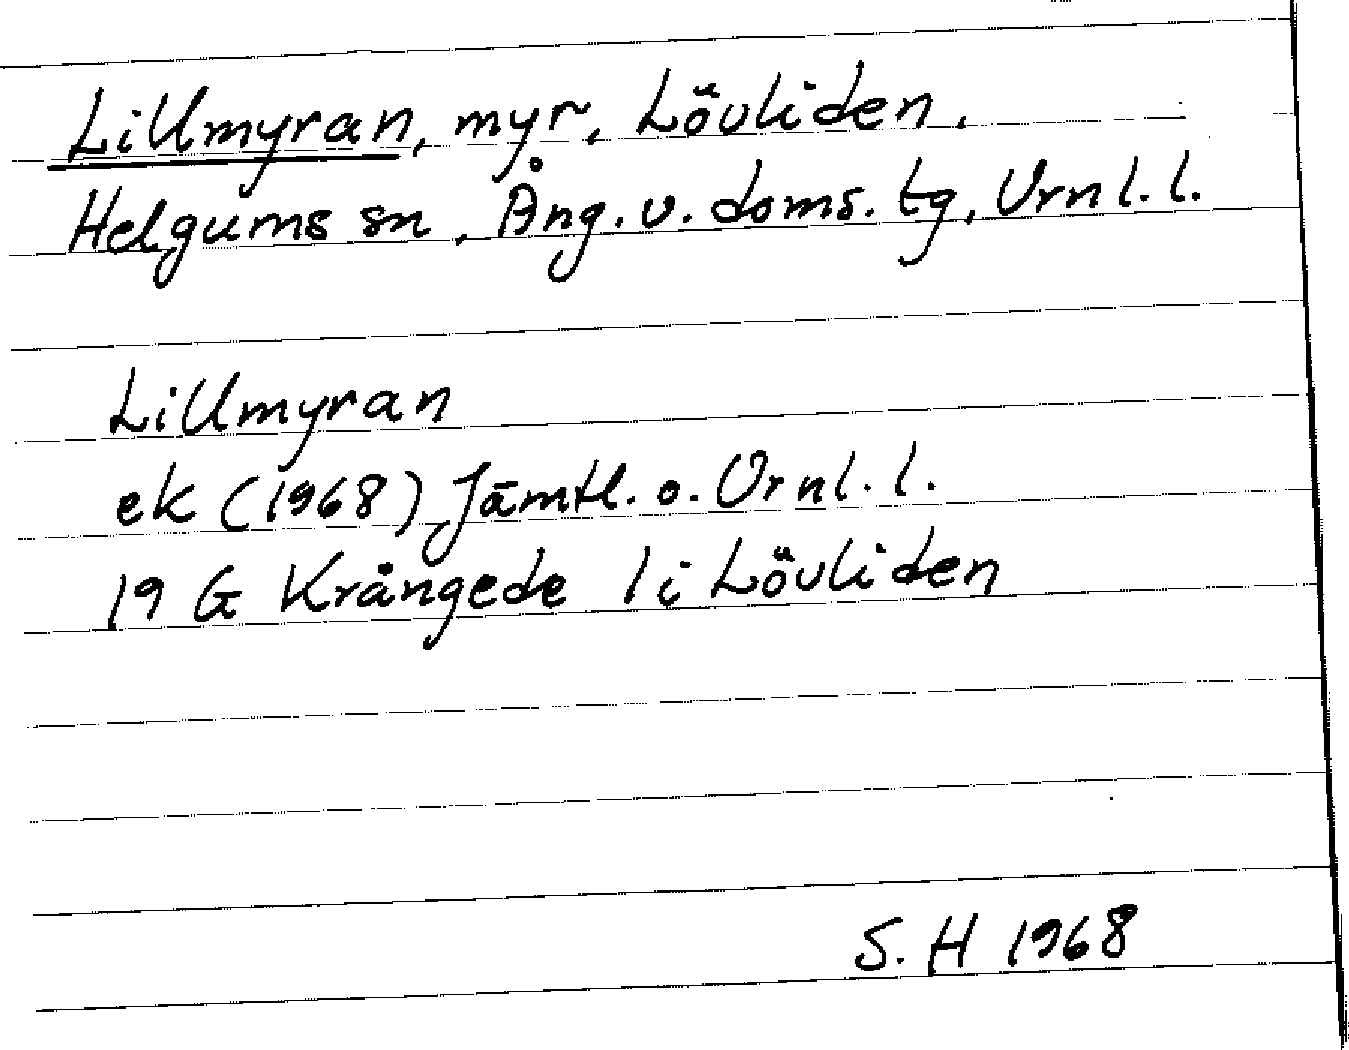 Lillmyran, myr, Lövliden,
Helgums sn, Ång. v. doms. tg, Vrnl. l.
Lillmyran
ek (1968) Jämtl. o. Vrnl. l.
19 G Krångede 1 i Lövliden
S. H 1968